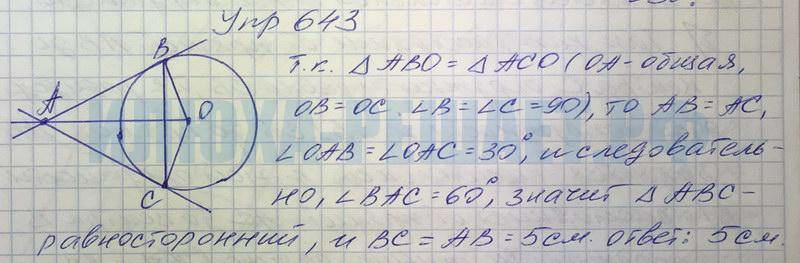 Упр 643
т.к. △ABO = △ACO (OA-общая,
OB=OC. ∠B=∠C=90), то AB=AC,
∠OAB=∠OAC=30°, и следователь-
но, ∠BAC=60°, значит △ABC-
равносторонний, и BC=AB=5см. ответ: 5см.
A
B
O
C
КЛЮХА-РЕШАЕТ.РФ